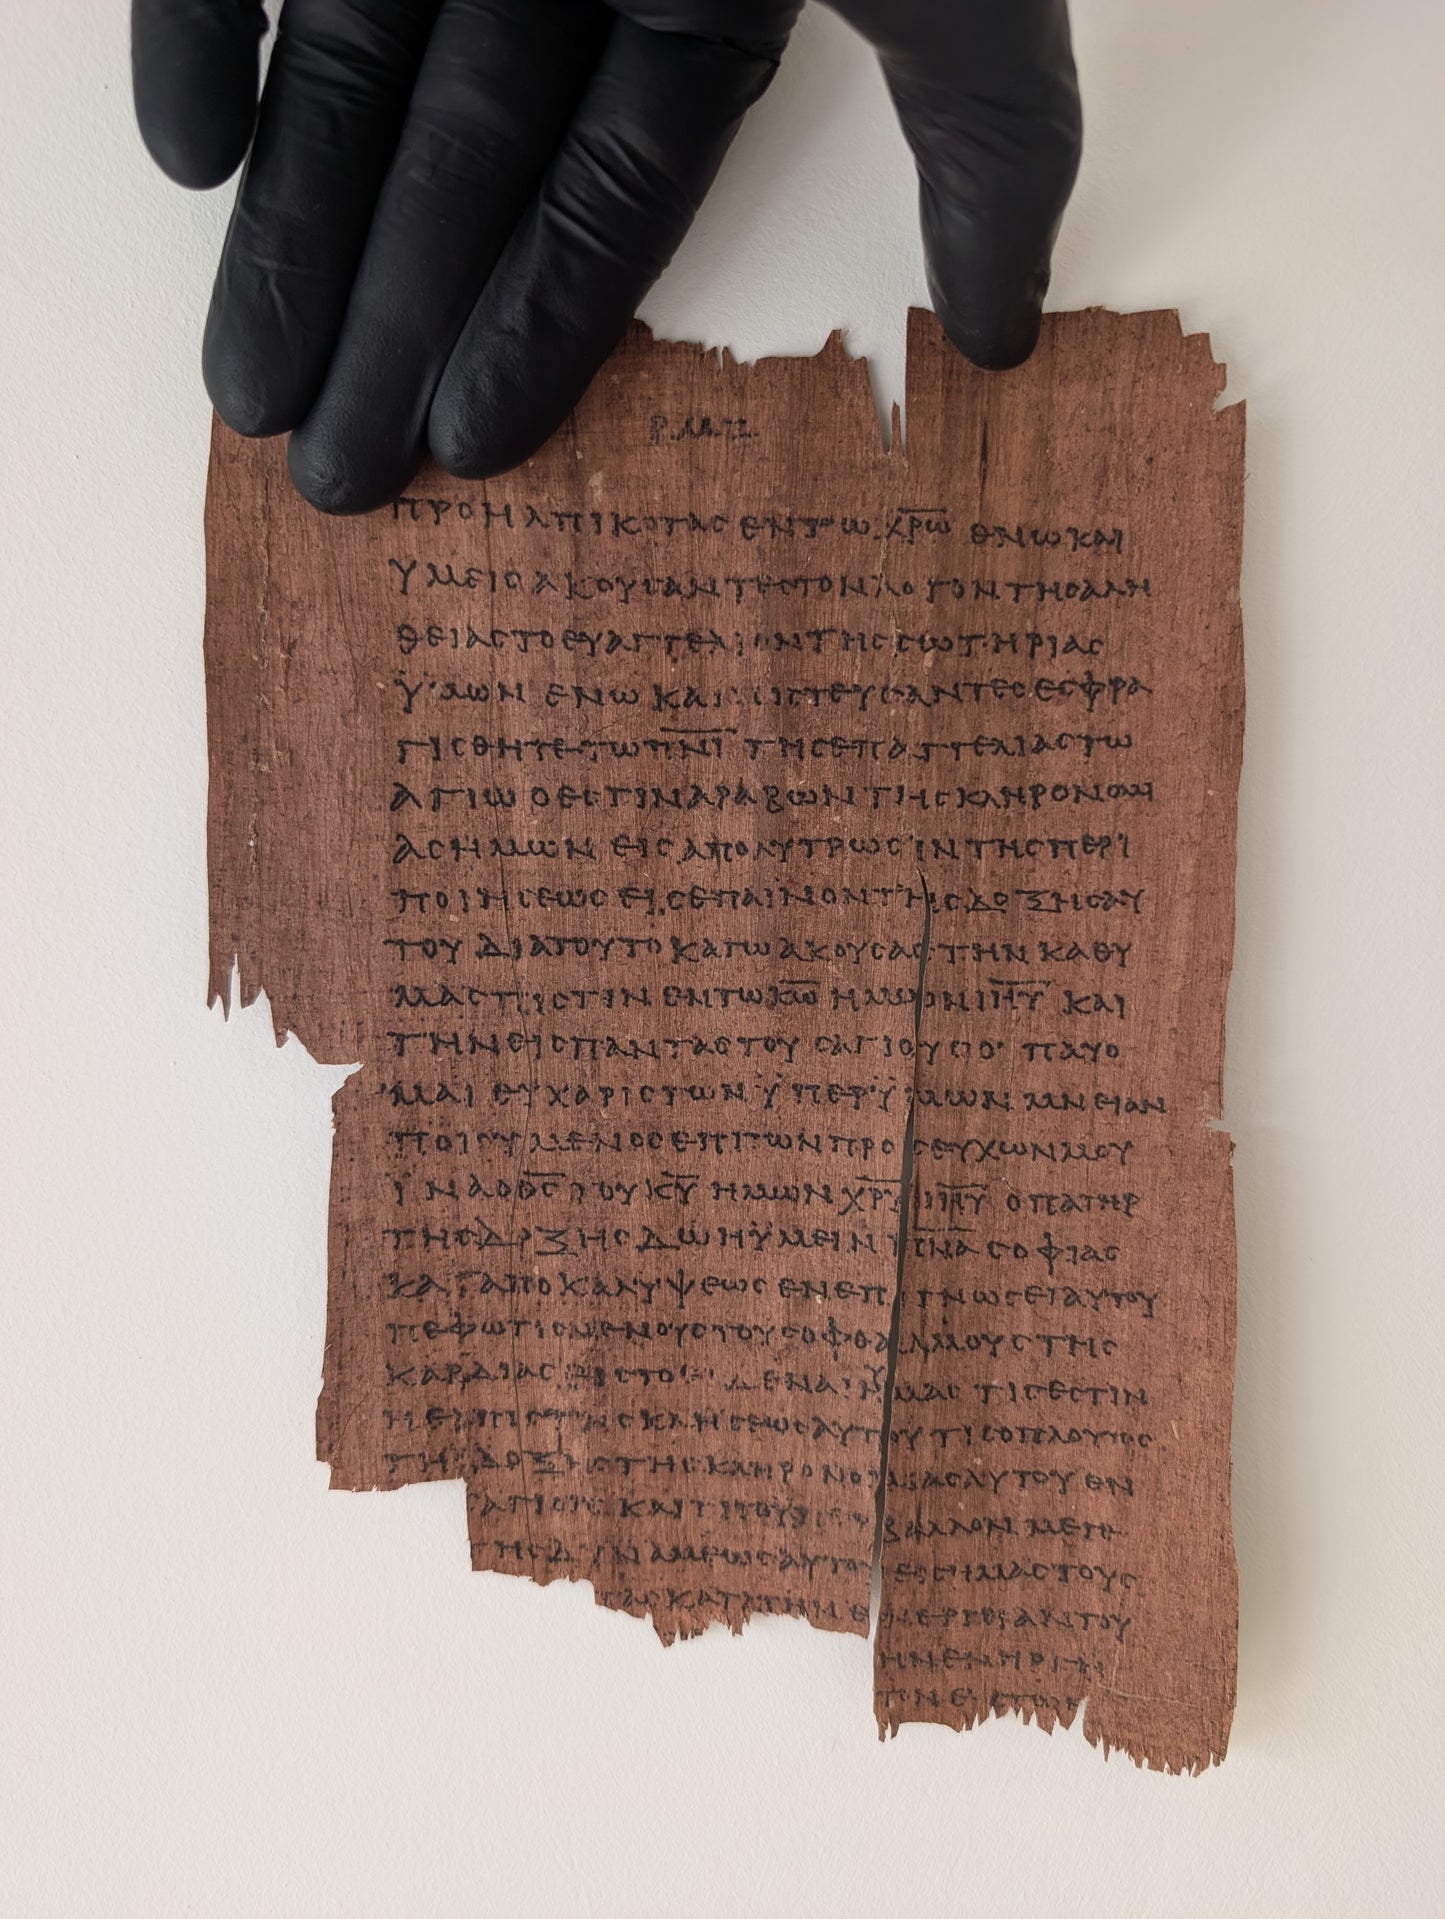 ΠΡΟΗΛΠΙΚΟΤΑΣ ΕΝ ΤΩ ΧΡΩ ΕΝ Ω ΚΑΙ
ΥΜΕΙΣ ΑΚΟΥΣΑΝΤΕΣ ΤΟΝ ΛΟΓΟΝ ΤΗΣ ΑΛΗ
ΘΕΙΑΣ ΤΟ ΕΥΑΓΓΕΛΙΟΝ ΤΗΣ ΣΩΤΗΡΙΑΣ
ΫΜΩΝ ΕΝ Ω ΚΑΙ ΠΙΣΤΕΥΣΑΝΤΕΣ ΕΣΦΡΑ
ΓΙΣΘΗΤΕ ΤΩ ΠΝΙ ΤΗΣ ΕΠΑΓΓΕΛΙΑΣ ΤΩ
ΑΓΙΩ Ο ΕΣΤΙΝ ΑΡΑΒΩΝ ΤΗΣ ΚΛΗΡΟΝΟΜΙ
ΑΣ ΗΜΩΝ ΕΙΣ ΑΠΟΛΥΤΡΩΣΙΝ ΤΗΣ ΠΕΡΙ
ΠΟΙΗΣΕΩΣ ΕΙΣ ΕΠΑΙΝΟΝ ΤΗΣ ΔΟΞΗΣ ΑΥ
ΤΟΥ ΔΙΑ ΤΟΥΤΟ ΚΑΓΩ ΑΚΟΥΣΑΣ ΤΗΝ ΚΑΘ Υ
ΜΑΣ ΠΙΣΤΙΝ ΕΝ ΤΩ ΚΩ ΗΜΩΝ ΙΗΥ ΚΑΙ
ΤΗΝ ΕΙΣ ΠΑΝΤΑΣ ΤΟΥΣ ΑΓΙΟΥΣ ΟΥ ΠΑΥΟ
ΜΑΙ ΕΥΧΑΡΙΣΤΩΝ ΫΠΕΡ ΫΜΩΝ ΜΝΕΙΑΝ
ΠΟΙΟΥΜΕΝΟΣ ΕΠΙ ΤΩΝ ΠΡΟΣΕΥΧΩΝ ΜΟΥ
ΪΝΑ Ο ΘΣ ΤΟΥ ΚΥ ΗΜΩΝ ΧΡΥ ΙΗΥ Ο ΠΑΤΗΡ
ΤΗΣ ΔΟΞΗΣ ΔΩΗ ΫΜΕΙΝ ΠΝΑ ΣΟΦΙΑΣ
ΚΑΙ ΑΠΟΚΑΛΥΨΕΩΣ ΕΝ ΕΠΙΓΝΩΣΕΙ ΑΥΤΟΥ
ΠΕΦΩΤΙΣΜΕΝΟΥΣ ΤΟΥΣ ΟΦΘΑΛΜΟΥΣ ΤΗΣ
ΚΑΡΔΙΑΣ ΕΙΣ ΤΟ ΕΙΔΕΝΑΙ ΥΜΑΣ ΤΙΣ ΕΣΤΙΝ
Η ΕΛΠΙΣ ΤΗΣ ΚΛΗΣΕΩΣ ΑΥΤΟΥ ΤΙΣ Ο ΠΛΟΥΤΟΣ
ΤΗΣ ΔΟΞΗΣ ΤΗΣ ΚΛΗΡΟΝΟΜΙΑΣ ΑΥΤΟΥ ΕΝ
ΑΓΙΟΙΣ ΚΑΙ ΤΙ ΤΟ ΒΑΛΛΟΝ ΜΕΓΕ
ΤΗΣ ΔΥΝΑΜΕΩΣ ΑΥΤΟΥ ΕΙΣ ΗΜΑΣ ΤΟΥΣ
ΚΑΤΑ ΤΗΝ ΕΝΕΡΓΕΙΑΝ ΤΟΥ
ΗΝ ΕΝΗΡΓΗ